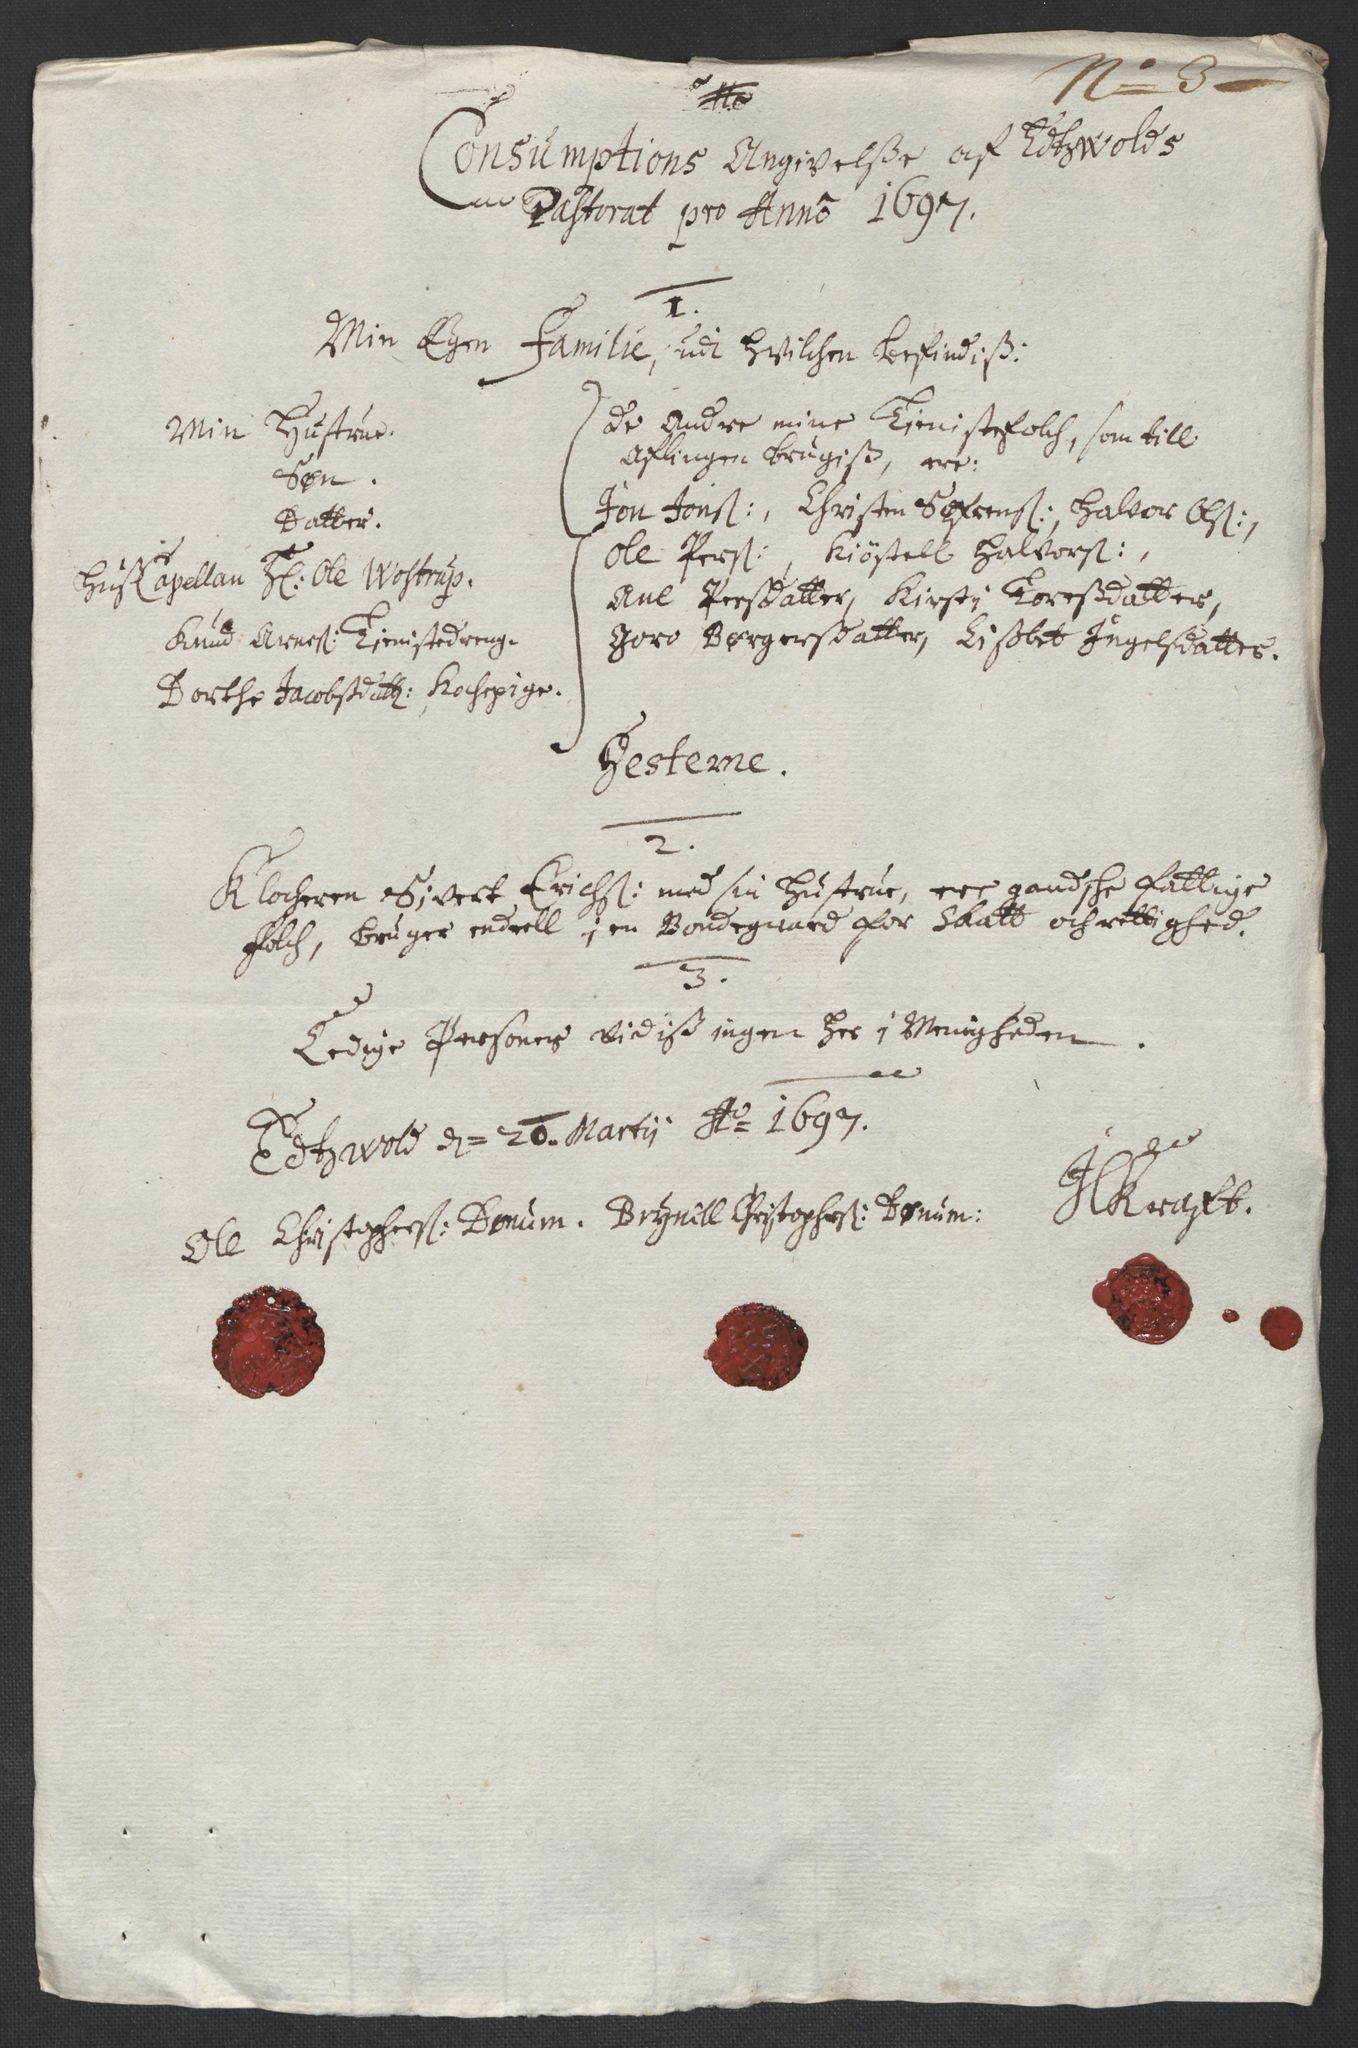 No 3
Consumptions Angivelsse af Edtzwolds
Pastorat pro Anno 1697.
1.
Min Egen Familie, udi hvilchen befindiss:
Min Hustrue.
Søn.
Datter.
Huss Capellan Hr: Ole Wostrup.
Knud Arness: Tienistedreng.
Dorthe Jacobssdatt: Kochepige.
de Andre mine Tienistefolch, som till
Aflingen brugiss, ere:
Jon Jons:, Christen Søfrens:, Halvor Ols:,
Ole Pers:, Kiöstell Halvors:,
Ane Perssdatter, Kirsti Toressdatter,
Goro Børgerssdatter, Lissbet Ingelsdatter.
Hesterne.
2.
Klocheren Sivert Erichs: med sin Hustrue, ere gandsche fattige
folch, bruger endeell i en Bondegaard for Skatt och rettighed.
3.
Ledige Personer vidiss ingen her i Menigheden.
Edtzwold d= 20. Martij Ao= 1697.
Ole Christophers: Dønum. Brynill Christophers: Dønum:
JLKrafft.